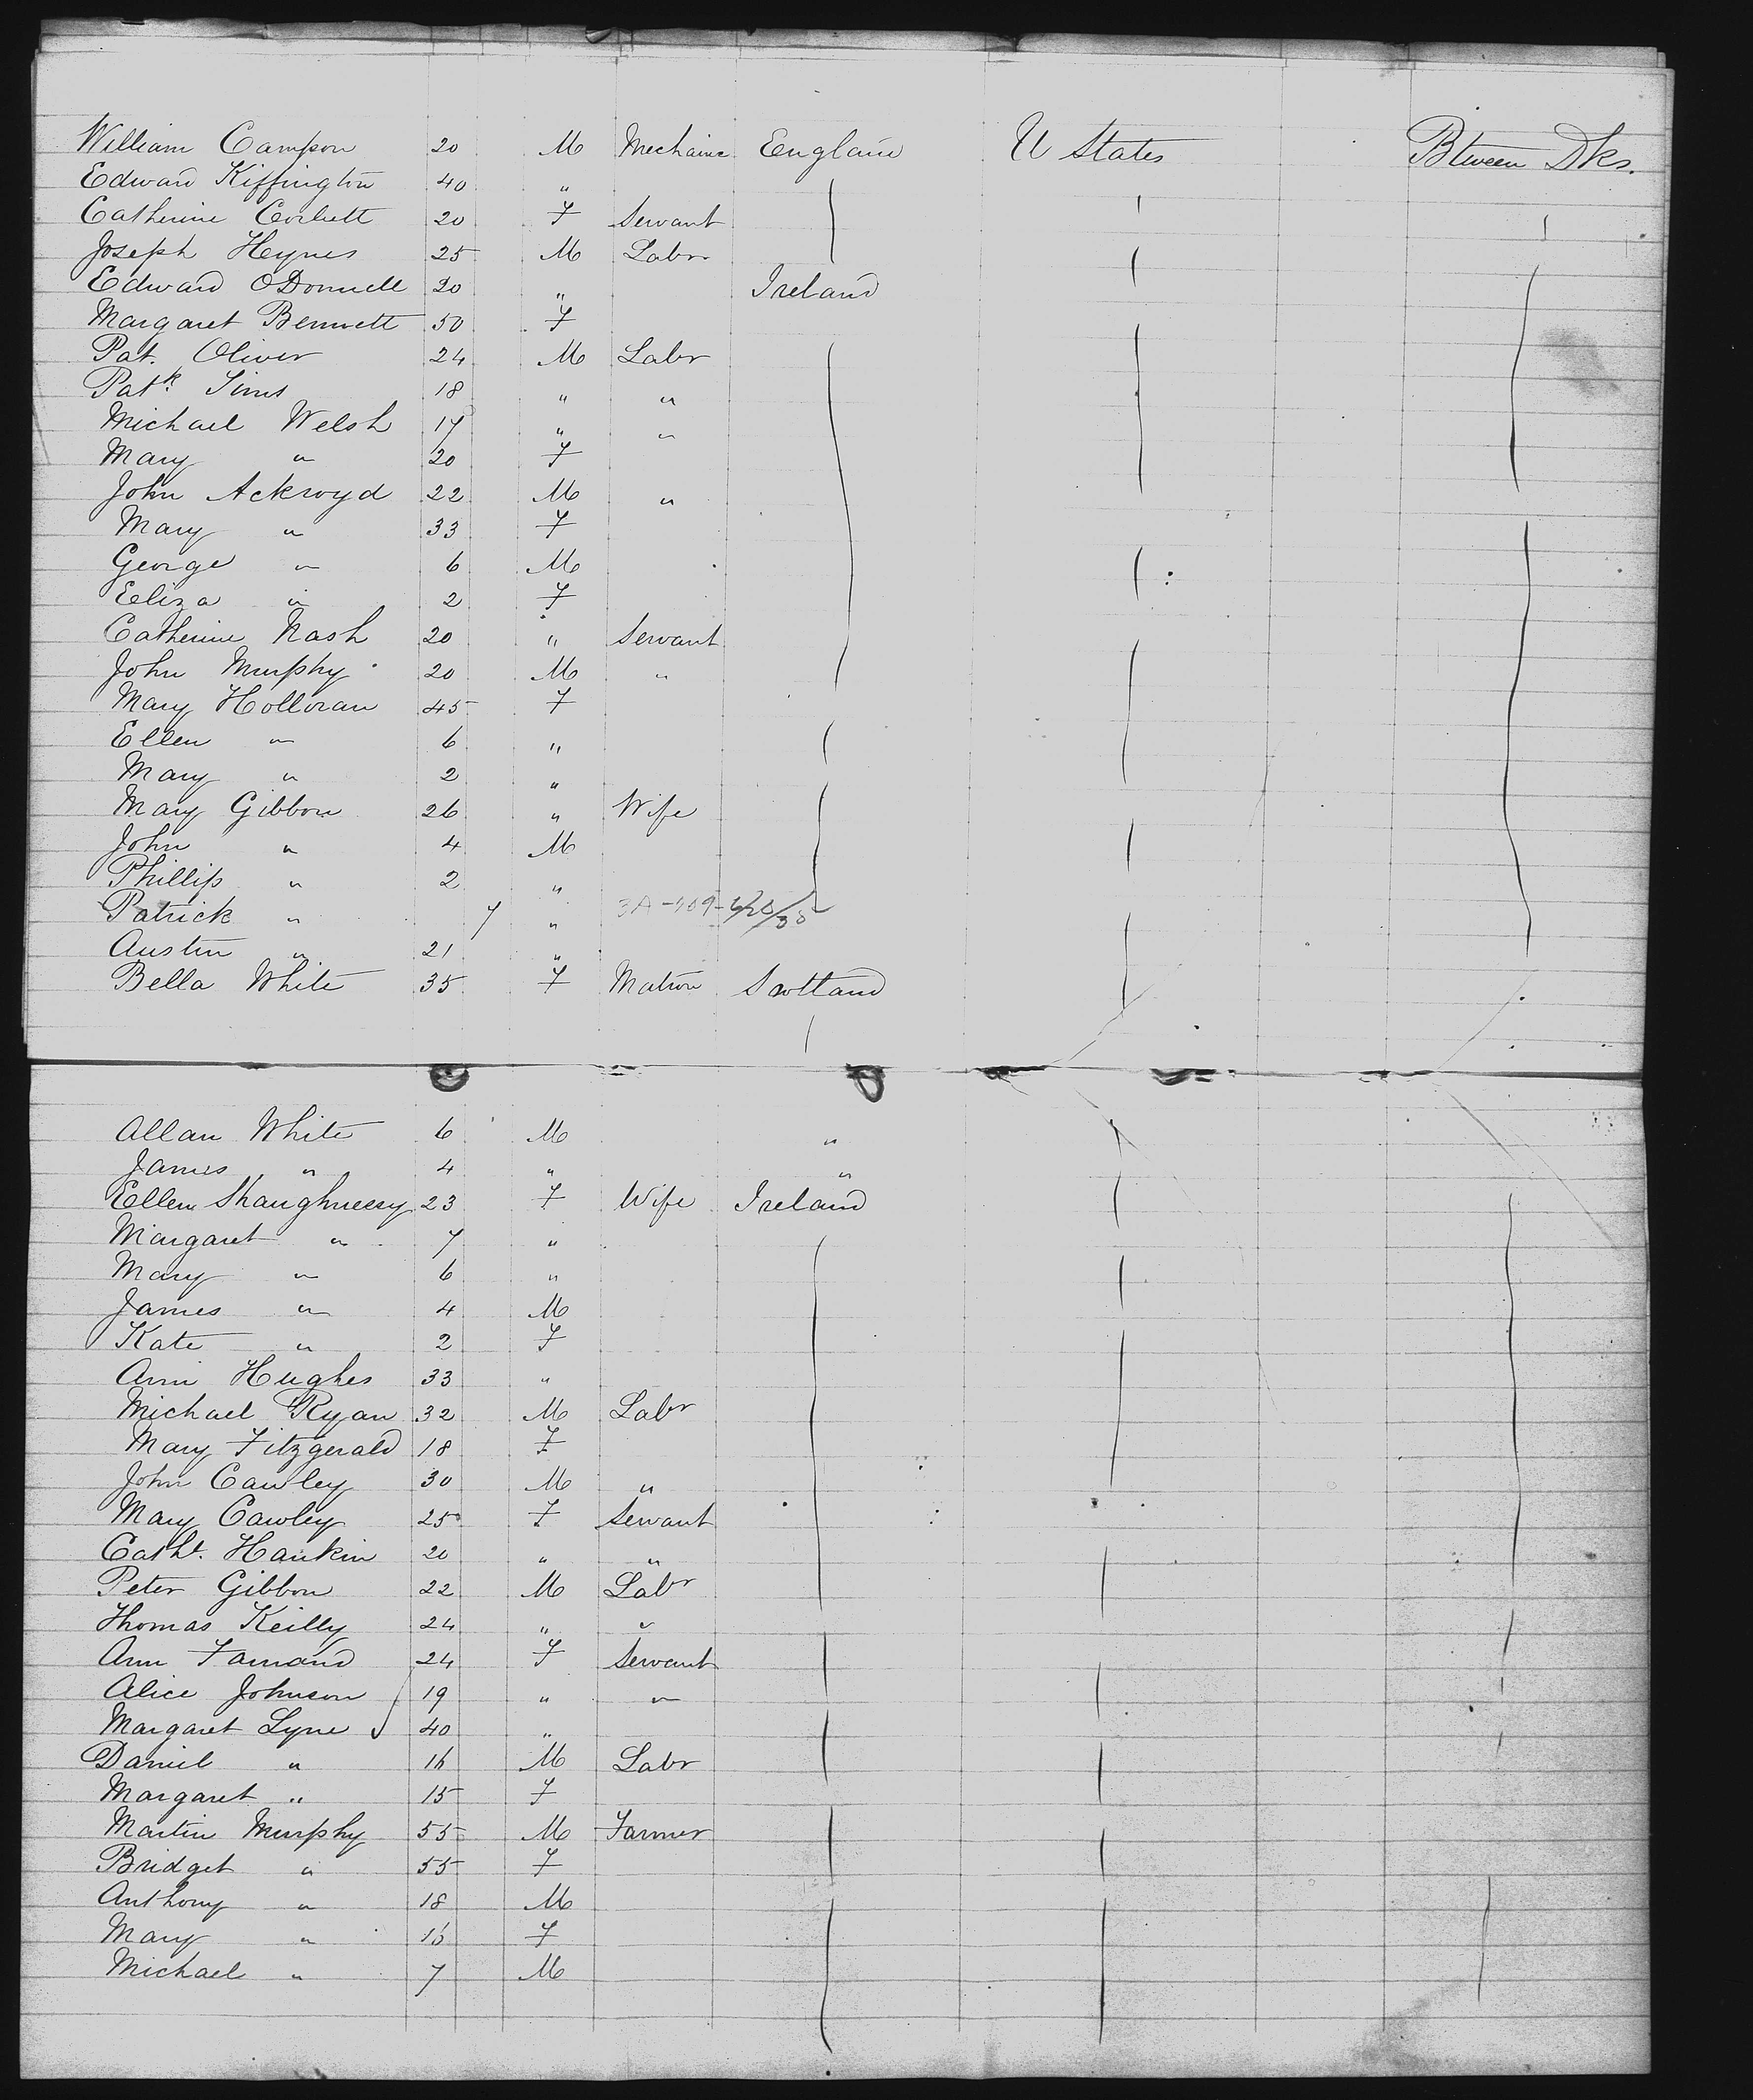 William Campson 20 M Mechanic England U States Btween Dks.
Edward Kiffington 40 "
Catherine Corbett 20 F Servant
Joseph Heynes 25 M Labr
Edward O'Donnell 20 " Ireland
Margaret Bennett 50 F
Pat. Oliver 24 M Labr
Patk. Sims 18 " "
Michael Welsh 17 " "
Mary " 20 F
John Ackroyd 22 M "
Mary " 33 F
George " 6 M
Eliza " 2 F
Catherine Nash 20 " Servant
John Murphy 20 M "
Mary Holloran 45 F
Ellen " 6 "
Mary " 2 "
Mary Gibbon 26 " Wife
John " 4 M
Phillip " 2 "
Patrick " 7 " 3A-409-6/20/38
Austin " 21 "
Bella White 35 F Matron Scotland
Allan White 6 M "
James " 4 " "
Ellen Shaughnessy 23 F Wife Ireland
Margaret " 7 "
Mary " 6 "
James " 4 M
Kate " 2 F
Ann Hughes 33 "
Michael Ryan 32 M Labr
Mary Fitzgerald 18 F
John Cawley 30 M "
Mary Cawley 25 F Servant
Catht. Hankin 20 " "
Peter Gibbon 22 M Labr
Thomas Keilly 24 " "
Ann 24 F Servant
Alice Johnson 19 " "
Margaret Lyne 40 "
Daniel " 16 M Labr
Margaret " 15 F
Martin Murphy 55 M Farmer
Bridget " 55 F
Anthony " 18 M
Mary " 16 F
Michael " 7 M